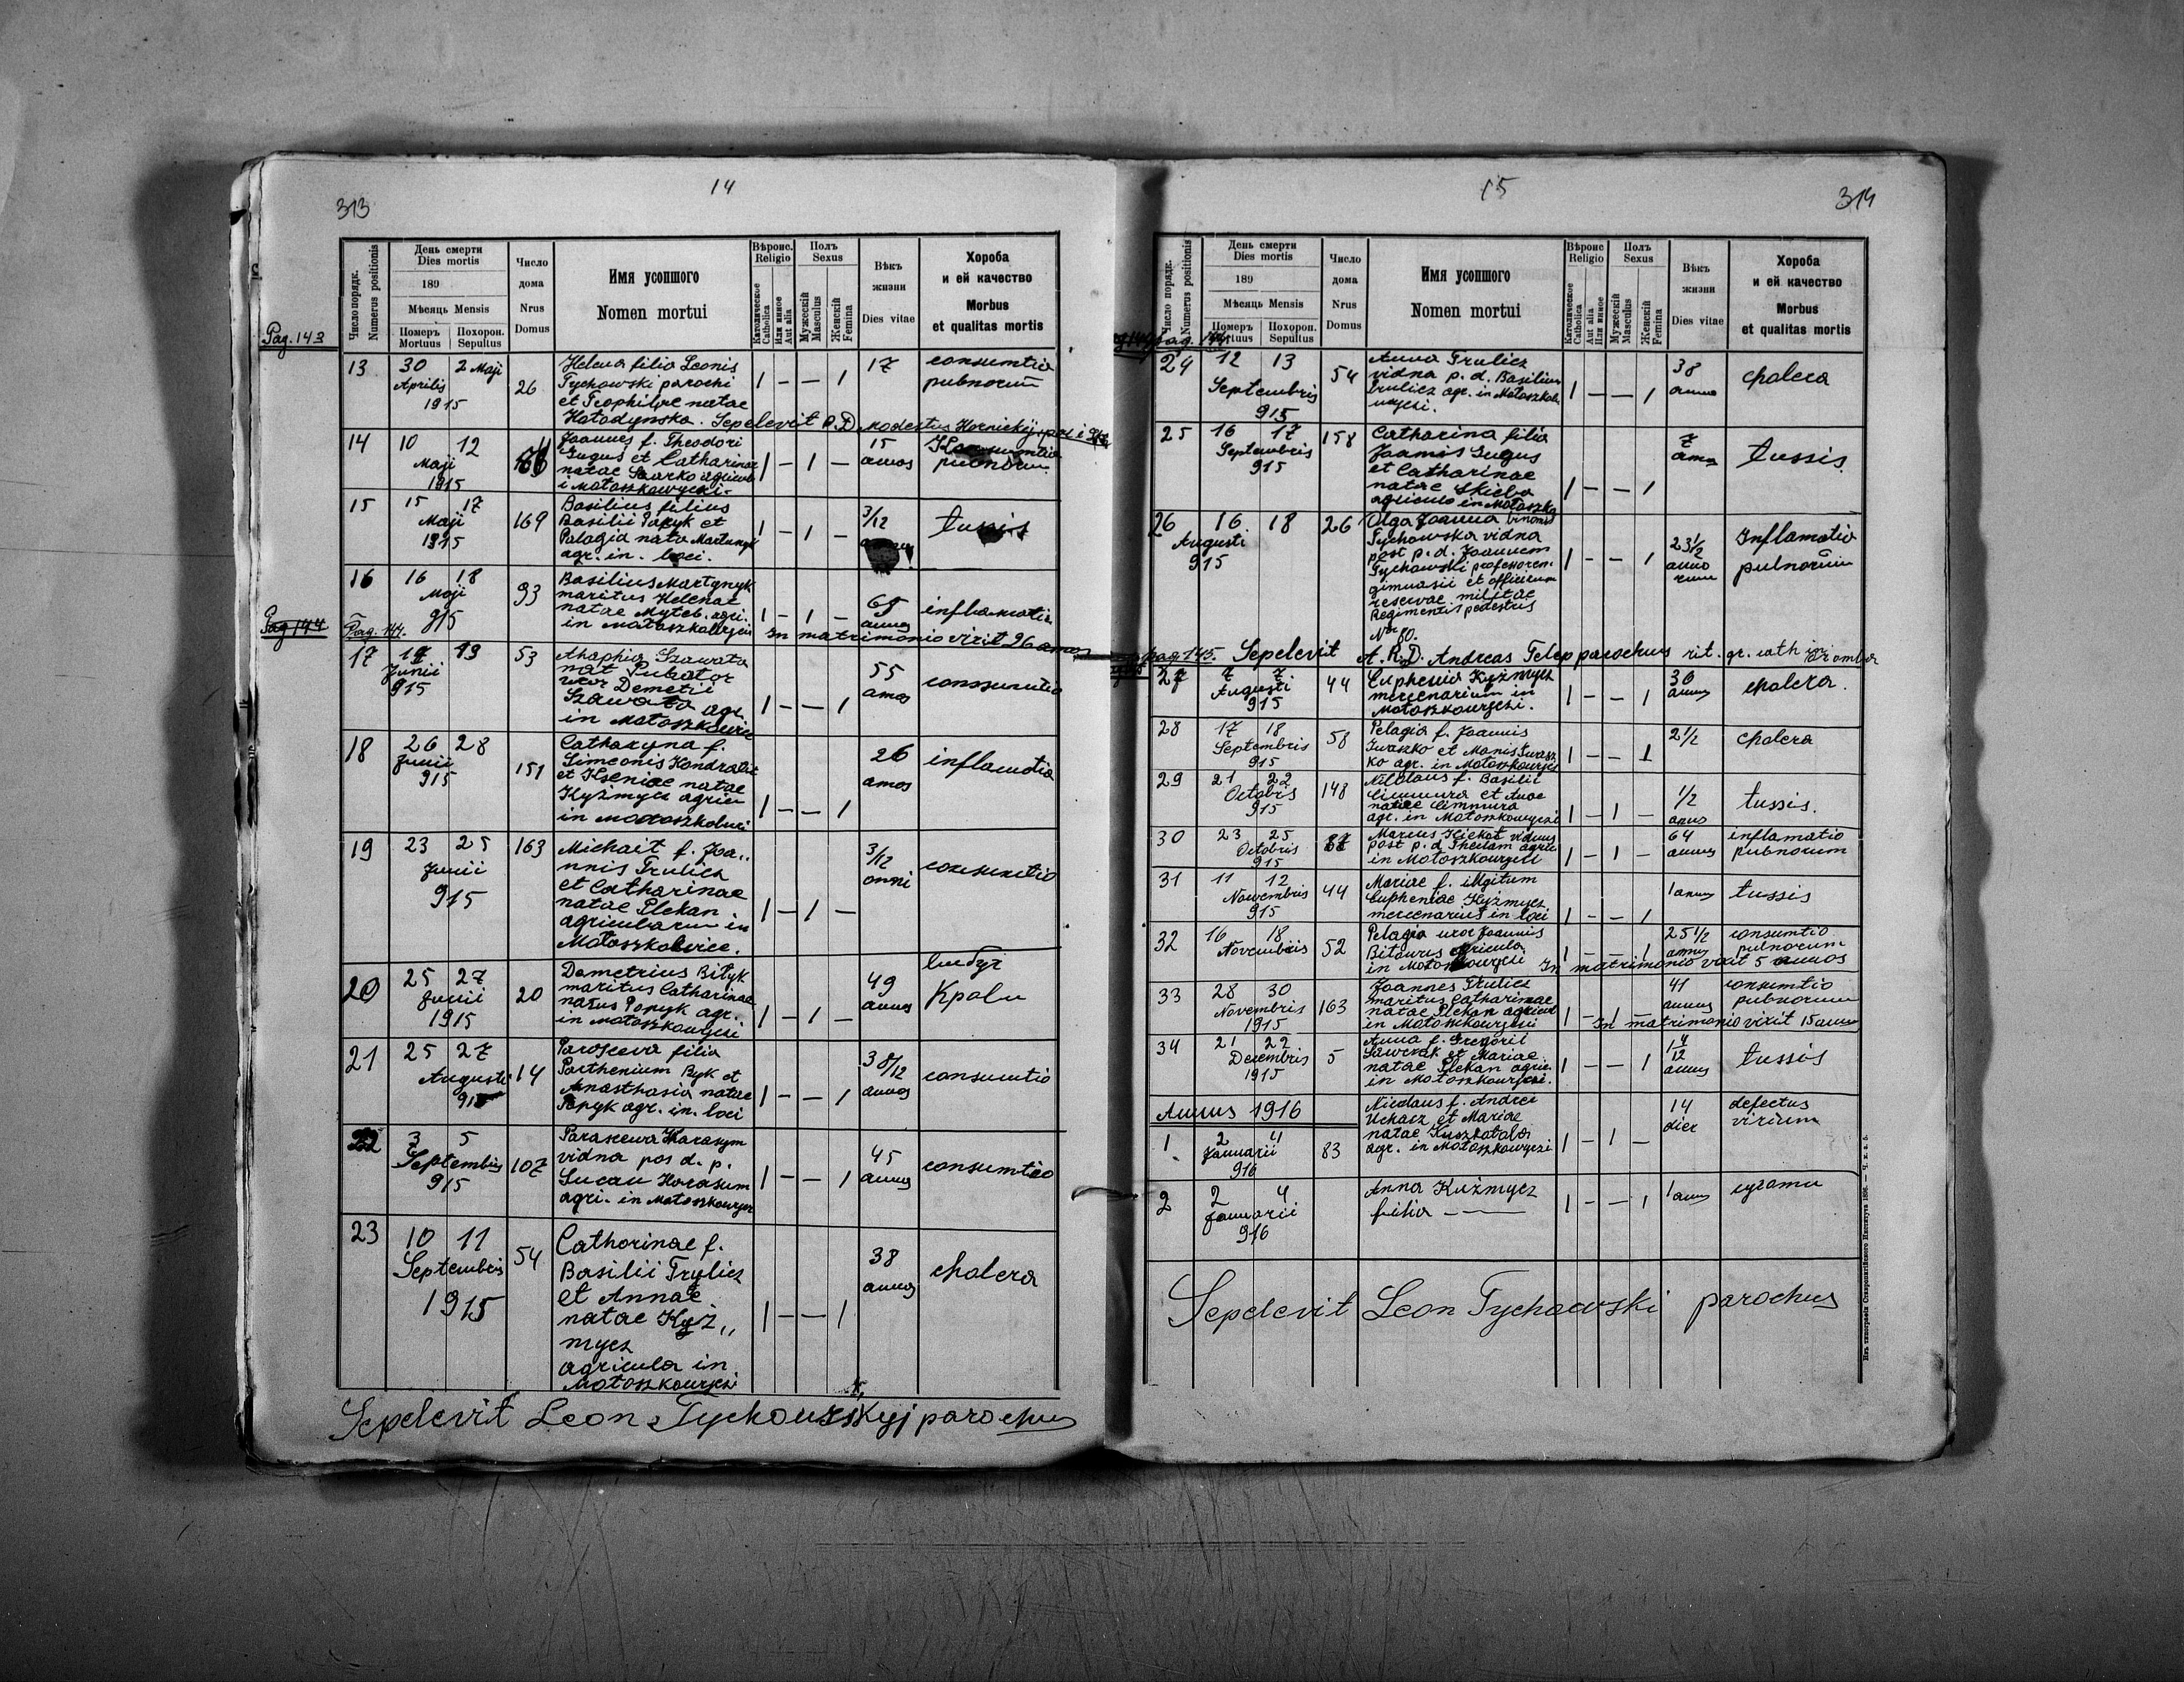 14
313
Число порядк.
Numerus positionis
День смерти
Dies mortis
189
Мѣсяць Mensis
Померъ
Mortuus
Похорон.
Sepultus
Число
дома
Nrus
Domus
Имя усопшого
Nomen mortui
Вѣроис.
Religio
Католическое
Catholica
Или иное
Aut alia
Полъ
Sexus
Мужескій
Masculus
Женскій
Femina
Вѣкъ
жизни
Dies vitae
Хороба
и ей качество
Morbus
et qualitas mortis
Pag. 143
13
30 2 Maji
Aprilis
1915
26
Helena filia Leonis
Tychowski parochi
et Teophilae natae
Hatodynska. Sepelevit R.D. Modestus Hornickij
1 – – 1
17
consumtio
pulnorum
14
10 12
Maji
1915
Joannes f. Theodori
Gugus et Catharinae
natae
i Motoszkowyczi
1 – 1 –
15
annos
Konsumtio
pulnorum
15
15 17
Maji
1915
169
Basilius filius
Basilii Popyk et
Palagia nata Martynyk
agr. in. loci.
1 – 1 –
3/12
tussis
16
16 18
Maji
915
93
Basilius Martynyk
maritus Helenae
natae Myteb. agri.
in Motoszkowyczi In matrimonio vixit 26 annos
1 – 1 –
65
annos
inflamatio
Pag 144
Pag. 144.
17
17 19
Junii
915
53
Ahaphia Szawata
nat Pubator
uxor Demetii
Szawata agr.
in Motoszkowice
1 – – 1
55
annos
conssumtio
18
26 28
Junii
915
151
Catharyna f.
Simeonis Kondratit
et Kseniae natae
Kyźmycz agric
in Motoszkowi
1 – – 1
26
annos
inflamatio
19
23 25
Junii
915
163
Michait f. Joa„
nnis Trulicz
et Catharinae
natae Plekan
agricularum in
Motoszkowice.
1 – 1 –
3/12
anni
consumtio
20
25 27
Junii
1915
20
Demetrius Bityk
maritus Catharinae
natus Popyk agr.
in Motoszkowyczi
1 – 1 –
49
annos
21
25 27
Augusti
915
14
Paraseva filia
Parthenium Byk et
Anasthasia natae
Popyk agr. in. loci
1 – – 1
3 8/12
annos
consumtio
22
3 5
Septembris
915
107
Parascewa Harasym
vidna pos d. p.
Lucau Horasum
agri. in Motoszkowycz
1 – – 1
45
annos
consumtio
23
10 11
Septembris
1915
54
Cathorinae f.
Basilii Trylicz
et Annae
natae Kyź„
mycz
agricula in
Motoszkowyczi
1 – – 1
38
annos
cholera
Sepelevit Leon Tychowskyj parochus
15
314
Число порядк.
Numerus positionis
День смерти
Dies mortis
189
Мѣсяць Mensis
Померъ
Mortuus
Похорон.
Sepultus
Число
дома
Nrus
Domus
Имя усопшого
Nomen mortui
Вѣроис
Religio
Католическое
Catholica
Или иное
Aut alia
Полъ
Sexus
Мужескій
Masculus
Женскій
Femina
Вѣкъ
жизни
Dies vitae
Хороба
и ей качество
Morbus
et qualitas mortis
pag. 144.
24
12 13
Septembris
915
54
Anna Trulicz
vidna p. d. Basilius
Trulicz agr. in Motoszko
wyczi.
1 – – 1
38
annos
cholera
25
16 17
Septembris
915
158
Catharina filia
Joannis Gugus
et Catharinae
natae Skieba
agricula in Motoszko
1 – – 1
7
annos
tussis
26
16. 18
Augusti
915
26
Olga Joanna binomis
Tychowska vidna
post p. d. Joannem
Tychowski professorem
gimnasii et officirum
reservae militae
Regimentis pedestris
No 80.
1 – – 1
23 1/2
anno
rum
Inflamatio
pulnorum
pag 145. Sepelevit A. R. D. Andreas Telep parochus rit. gr. cath
27
7 7.
Augusti
915
44
Euphenia Kyźmycz
mercenarium in
Motoszkowyczi.
1 – – 1
36
annos
cholera.
28
17 18
Septembris
915
58
Pelagia f. Joannis
Iwaszko et Manis Iwasz
ko agr. in Motoszkowyczi
1 – – 1
2 1/2
cholera
29
21 22
Octobris
915
148
Nikolaus f. Basilii
Cimmura et Anae
natae Cimmura
agr. in Motoszkowyczi
1 – 1 –
1/2
anus
tussis.
30
23 25
Octobris
915
Marcus Kiekot viduus
post p. d Theclam agric
in Motoszkowyczi
1 – 1 –
64
annus
inflamatio
pulnorum
31
11 12
Nowembris
915
44
Mariae f. illigitum
Eupheniae Kyźmycz
mercenarius in loci
1 – – 1
1 annus
tussis
32
16 18
Novembris
52
Pelagia uxor Joannis
Bitowus agricula
in Motoszkowyczi In matrimonio vixit 5 annos
1 – – 1
25 1/2
annus
consumtio
pulnorum
33
28 30
Novembris
1915
163
Joannes Trulicz
maritus Catharinae
natae Plekan agricul
in Motoszkowyczi In matrimonio vixit 15 annos
1 – 1
41
annus
consumtio
pulnorum
34
21 22
Decembris
1915
5
Anna f. Gregorii
Lawrak et Mariae
natae Plekan agric.
in Motoszkowyczi.
1 – – 1
annus
tussis
Annus 1916
1
2 4
Januarii
916
83
Nicolaus f. Andrei
Uchacz et Mariae
natae Kuszkataba
agr. in Motoszkowyczi
1 – 1 –
14
dies
defectus
virium
2
2 4
Januarii
916
Anna Kuźmycz
filia — —
1 – – 1
1 annus
Sepelevit Leon Tychowski parochus
Изъ типографіи Ставропигійского Института 1886. — Ч. к. з. 5.